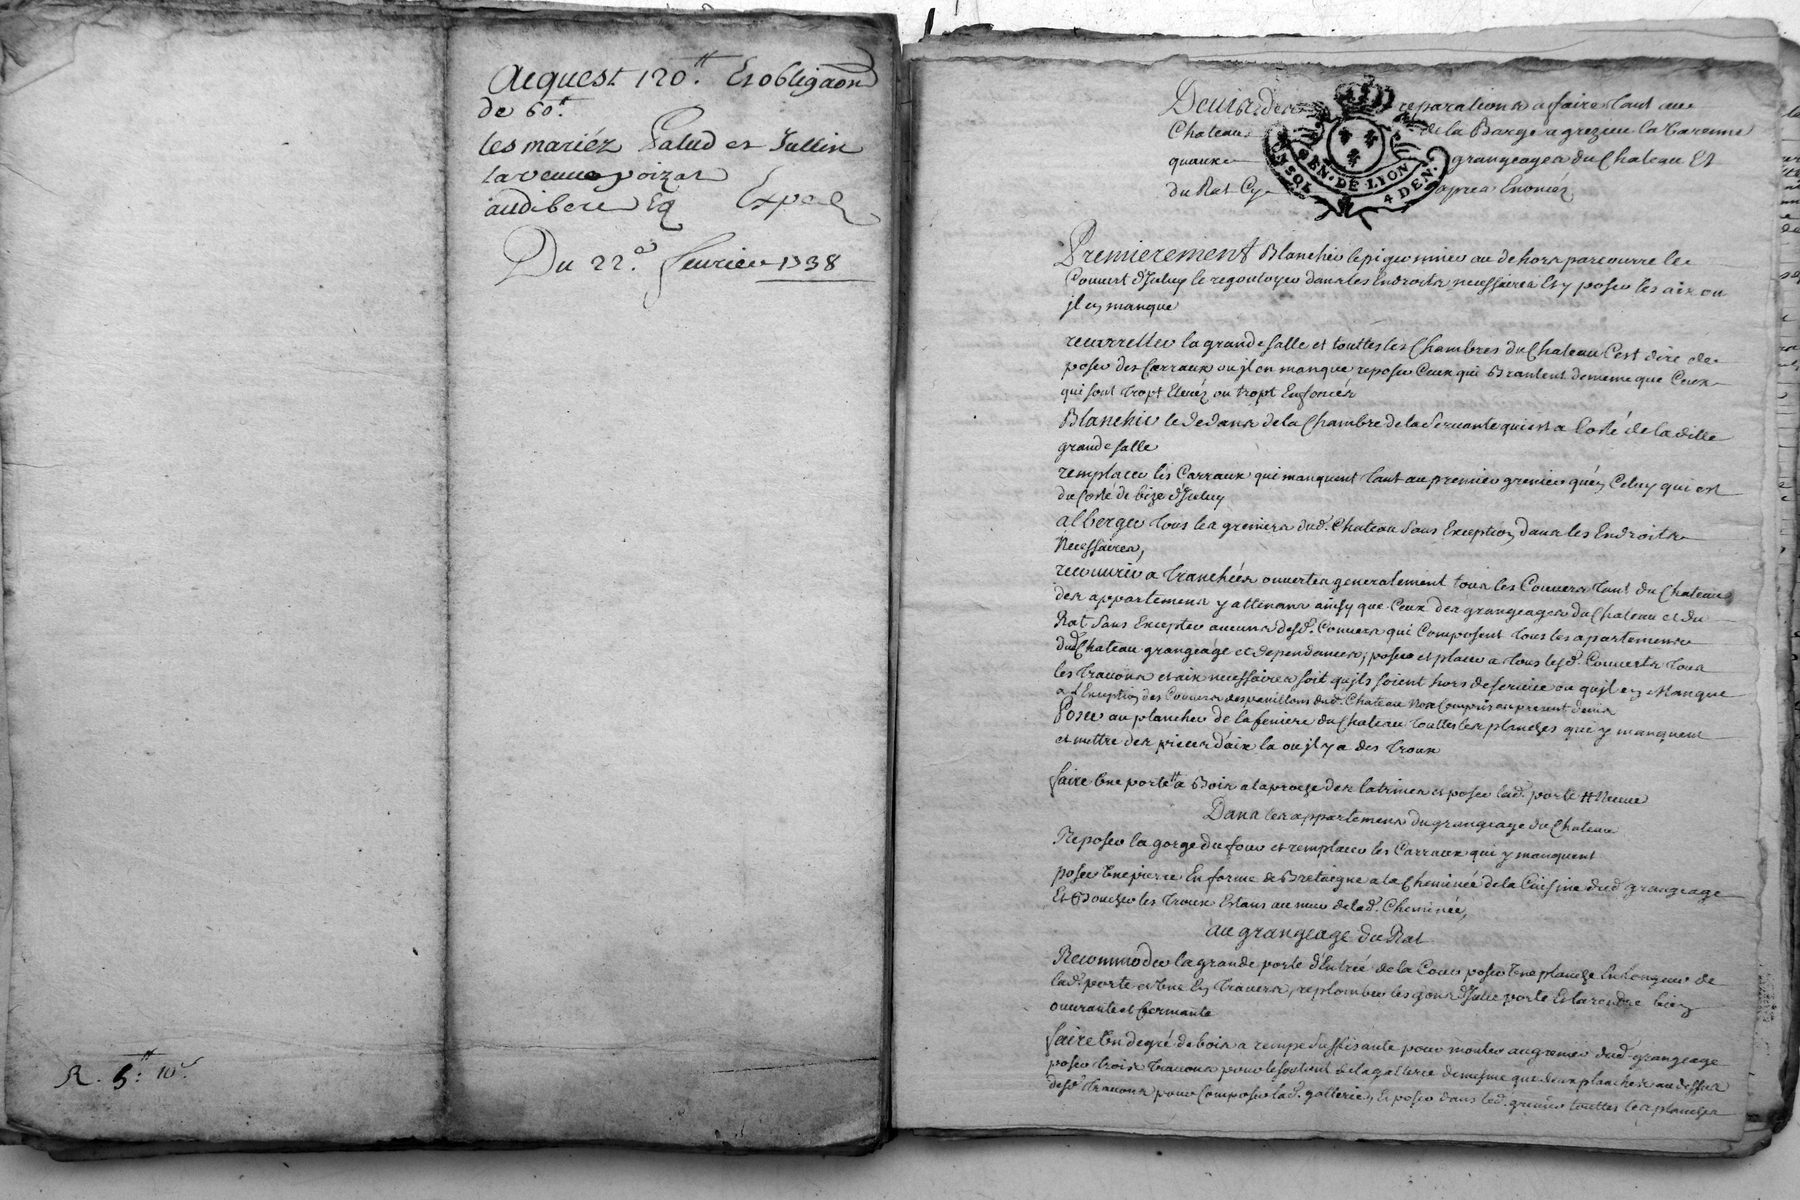 Acquest 120.tt Et obligaõn
de 60.tt
les mariéz Palud et Jullin
la veuve voizat
audibert Eq Exped
Du 22.e fevrier 1738
R. 5:tt 10s
Devis des reparations a faire tant au
Chateau de la Barge a grezieu la Varenne
quaux grangeages du Chateau Et
du Rat Cy apres Enoncéz
GEN. DE LION
UN SOL 4 DEN.
Premierement Blanchir le pigeonnier au dehors parcourre le
Couvert d'Iceluy le regoutoyer dans les Endroits necessaires Et y poser les aix ou
jl en manque
recarreller la grande salle et touttes les Chambres du Chateau C'est dire de
poser des Carraux ou jl en manque reposer Ceux qui Branlent de meme que Ceux
qui sont tropt Elevéz ou tropt Enfoncés
Blanchir le dedans de la Chambre de la Servante qui est a Costé de la ditte
grande salle
remplacer les Carraux qui manquent tant au premier grenier qu'en Celuy qui est
du Costé de bize d'Iceluy
alberger tous les greniers dud. Chateau Sans Exception dans les Endroits
Necessaires,
recouvrir a tranchées ouvertes generalement tous les Couvers tant du Chateau
des appartemens y attenans ainsy que Ceux des grangeages du Chateau et du
Rat Sans Excepter aucuns desd. Couvers qui Composent tous les apartemens
dud. Chateau grangeage et dependances, poser et placer a tous lesd. Couverts tous
les travons et aix necessaires soit qu'jls soient hors de service ou qu'jl en Manque
a l'Exception des Couvers des pavillons dud. Chateau Non Compris au present devis
Poser au plancher de la feniere du Chateau touttes les planches qui y manquent
et mettre des pieces d'aix la ou jl y a des troux
faire Une porte a Bois a la proche des latrines et poser lad. porte Neuve
Dans les appartemens du grangeage du Chateau
Reposer la gorge du four et remplacer les Carraux qui y manquent
poser Une pierre En forme de Bretaigne a la Cheminée de la Cuisine dud. grangeage
Et Boucher les troux Estans au mur de lad. Cheminée,
au grangeage du Rat
Recommoder la grande porte d'Entrée de la Cour poser Une planche En longueur de
lad. porte et Une En travers, replomber les gons d'Icelle porte Et la rendre bien
ouvrante et fermante
faire Un degré de bois a rempe suffisante pour monter au grenier dud. grangeage
poser trois travons pour le soutient de la gallerie de mesme que deux planches au dessus
desd. travons pour Composer lad. gallerie, Et poser dans led. grenier touttes les planches